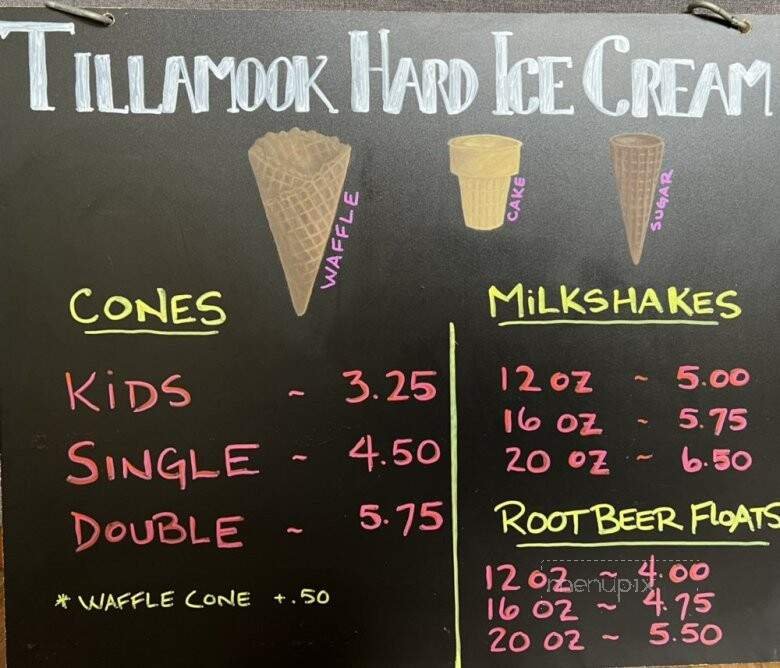 TILLAMOOK HARD ICE CREAM
WAFFLE
CAKE
SUGAR
CONES
KiDS ~ 3.25
SINGLE ~ 4.50
DOUBLE ~ 5.75
* WAFFLE CONE +.50
MiLKSHAKES
12 OZ ~ 5.00
16 OZ ~ 5.75
20 OZ ~ 6.50
ROOT BEER FLOATS
12 OZ ~ 4.00
16 OZ ~ 4.75
20 OZ ~ 5.50
menupix